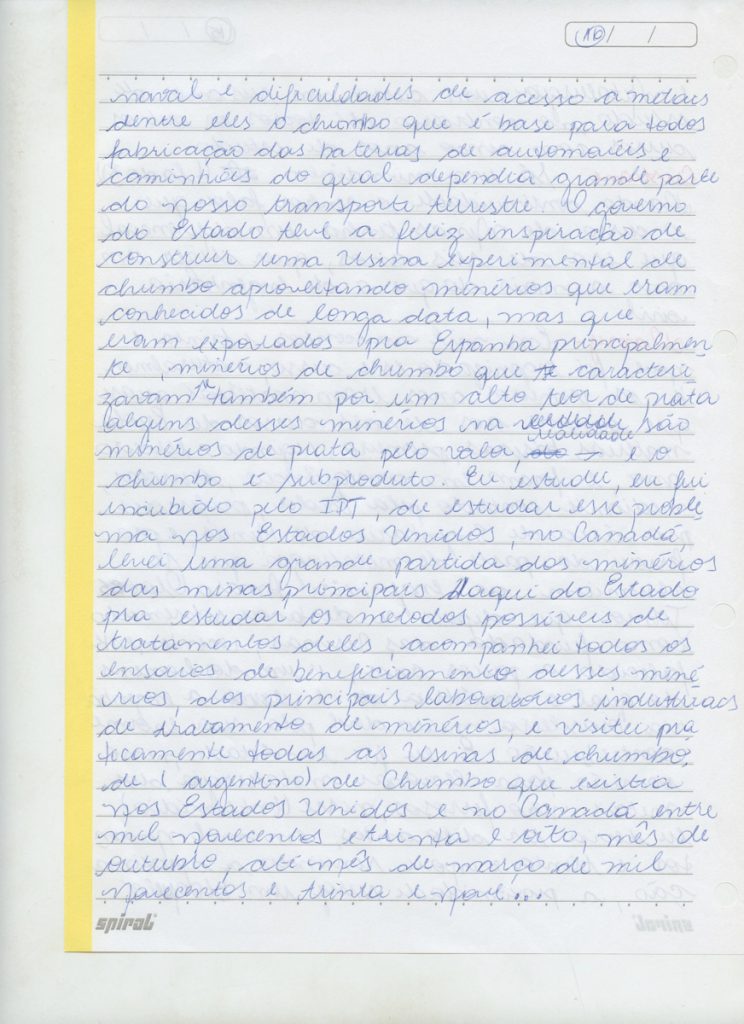 10 / /
naval e dificuldades de acesso a metais
dentre eles o chumbo que é base para todos
fabricação das baterias de automovéis e
caminhões do qual dependia grande parte
do nosso transporte terrestre. O governo
do Estado teve a feliz inspiração de
construir uma Usina experimental de
chumbo aproveitando minérios que eram
conhecidos de longa data, mas que
eram exportados pra Espanha principalmen-
te, minérios de chumbo que se caracteri-
zavam também por um alto teor de prata
(alguns desses minérios na realidade são
minérios de prata pelo valor, e o
chumbo é subproduto. Eu estudei, eu fui
incubido pelo IPT, de estudar esse proble-
ma nos Estados Unidos, no Canadá,
levei uma grande partida dos minérios
das minas principais daqui do Estado
pra estudar os metodos possíveis de
tratamentos deles, acompanhei todos os
ensaios de beneficiamento desses miné-
rios, dos principais laboratórios industriais
de tratamento de minérios, e visitei pra-
ticamente todas as Usinas de chumbo,
de (argentino) de Chumbo que existia
nos Estados Unidos e no Canadá, entre
mil novecentos e trinta e oito, mês de
outubro, até mês de março de mil
novecentos e trinta e nove...
spiral